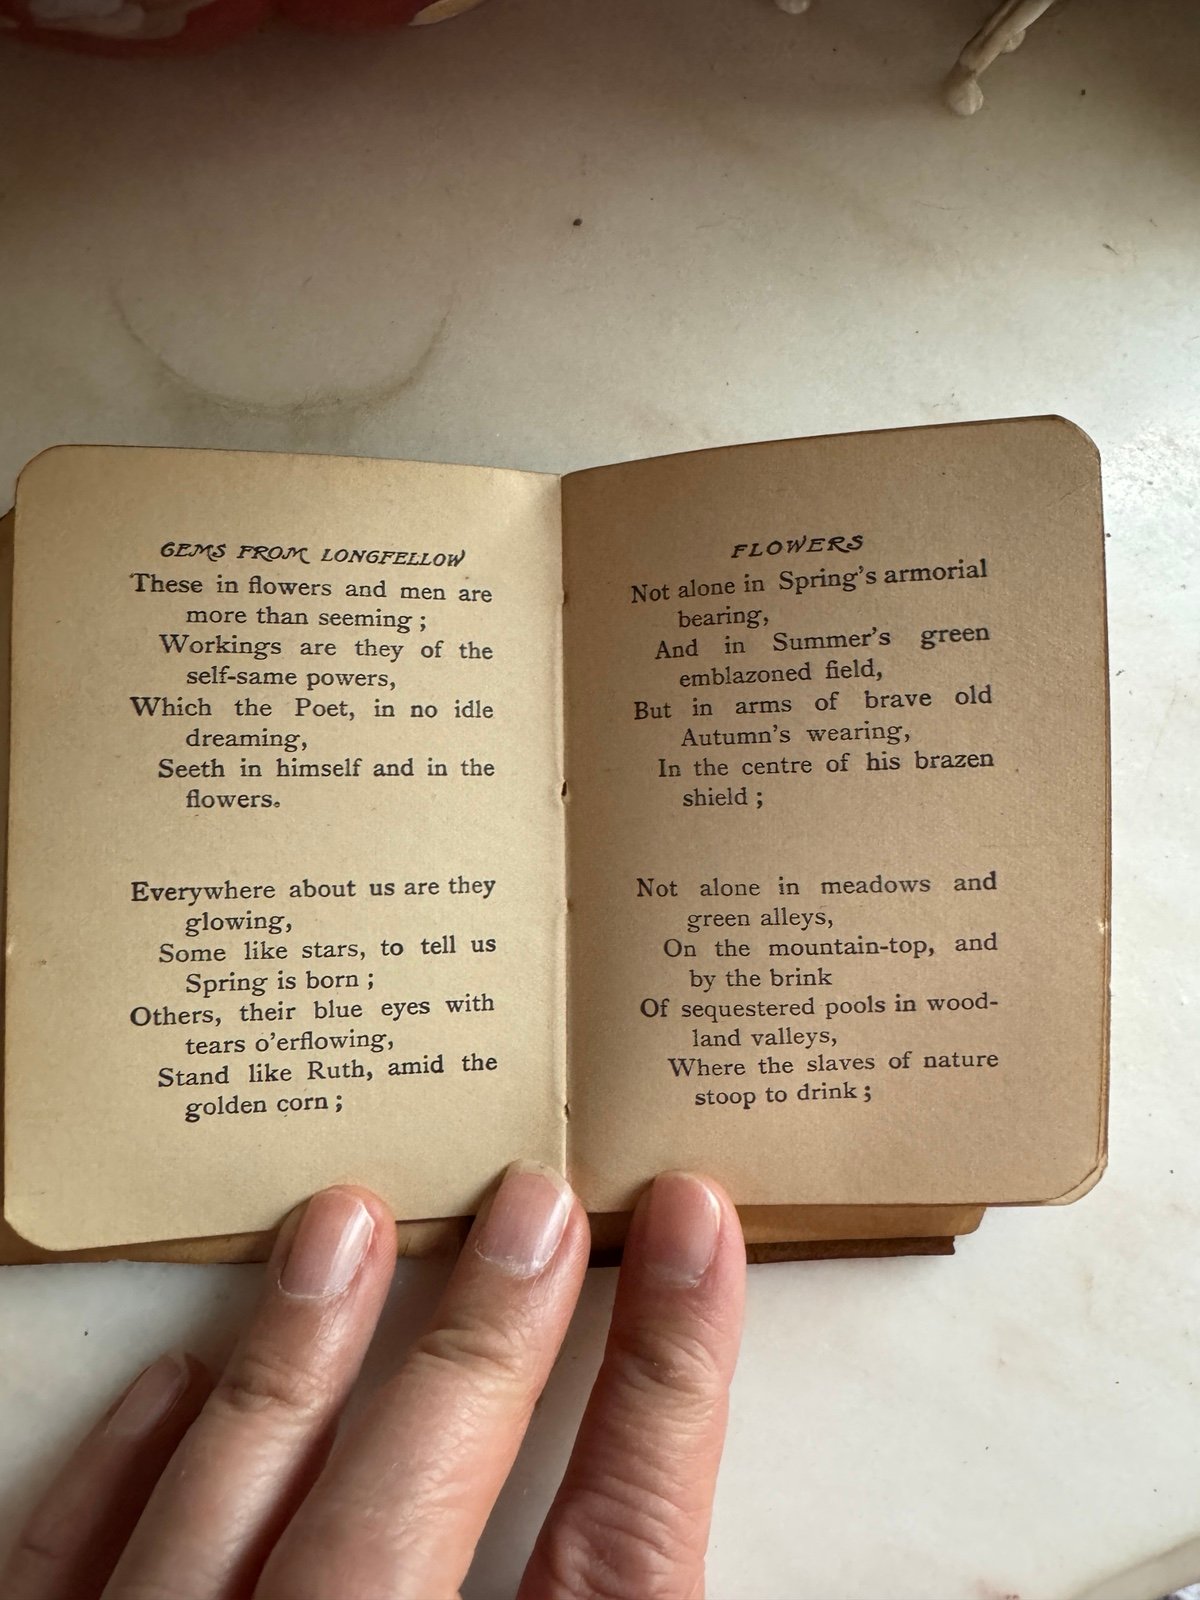 GEMS FROM LONGFELLOW
These in flowers and men are
more than seeming ;
Workings are they of the
self-same powers,
Which the Poet, in no idle
dreaming,
Seeth in himself and in the
flowers.
Everywhere about us are they
glowing,
Some like stars, to tell us
Spring is born ;
Others, their blue eyes with
tears o'erflowing,
Stand like Ruth, amid the
golden corn ;
FLOWERS
Not alone in Spring's armorial
bearing,
And in Summer's green
emblazoned field,
But in arms of brave old
Autumn's wearing,
In the centre of his brazen
shield ;
Not alone in meadows and
green alleys,
On the mountain-top, and
by the brink
Of sequestered pools in wood-
land valleys,
Where the slaves of nature
stoop to drink ;